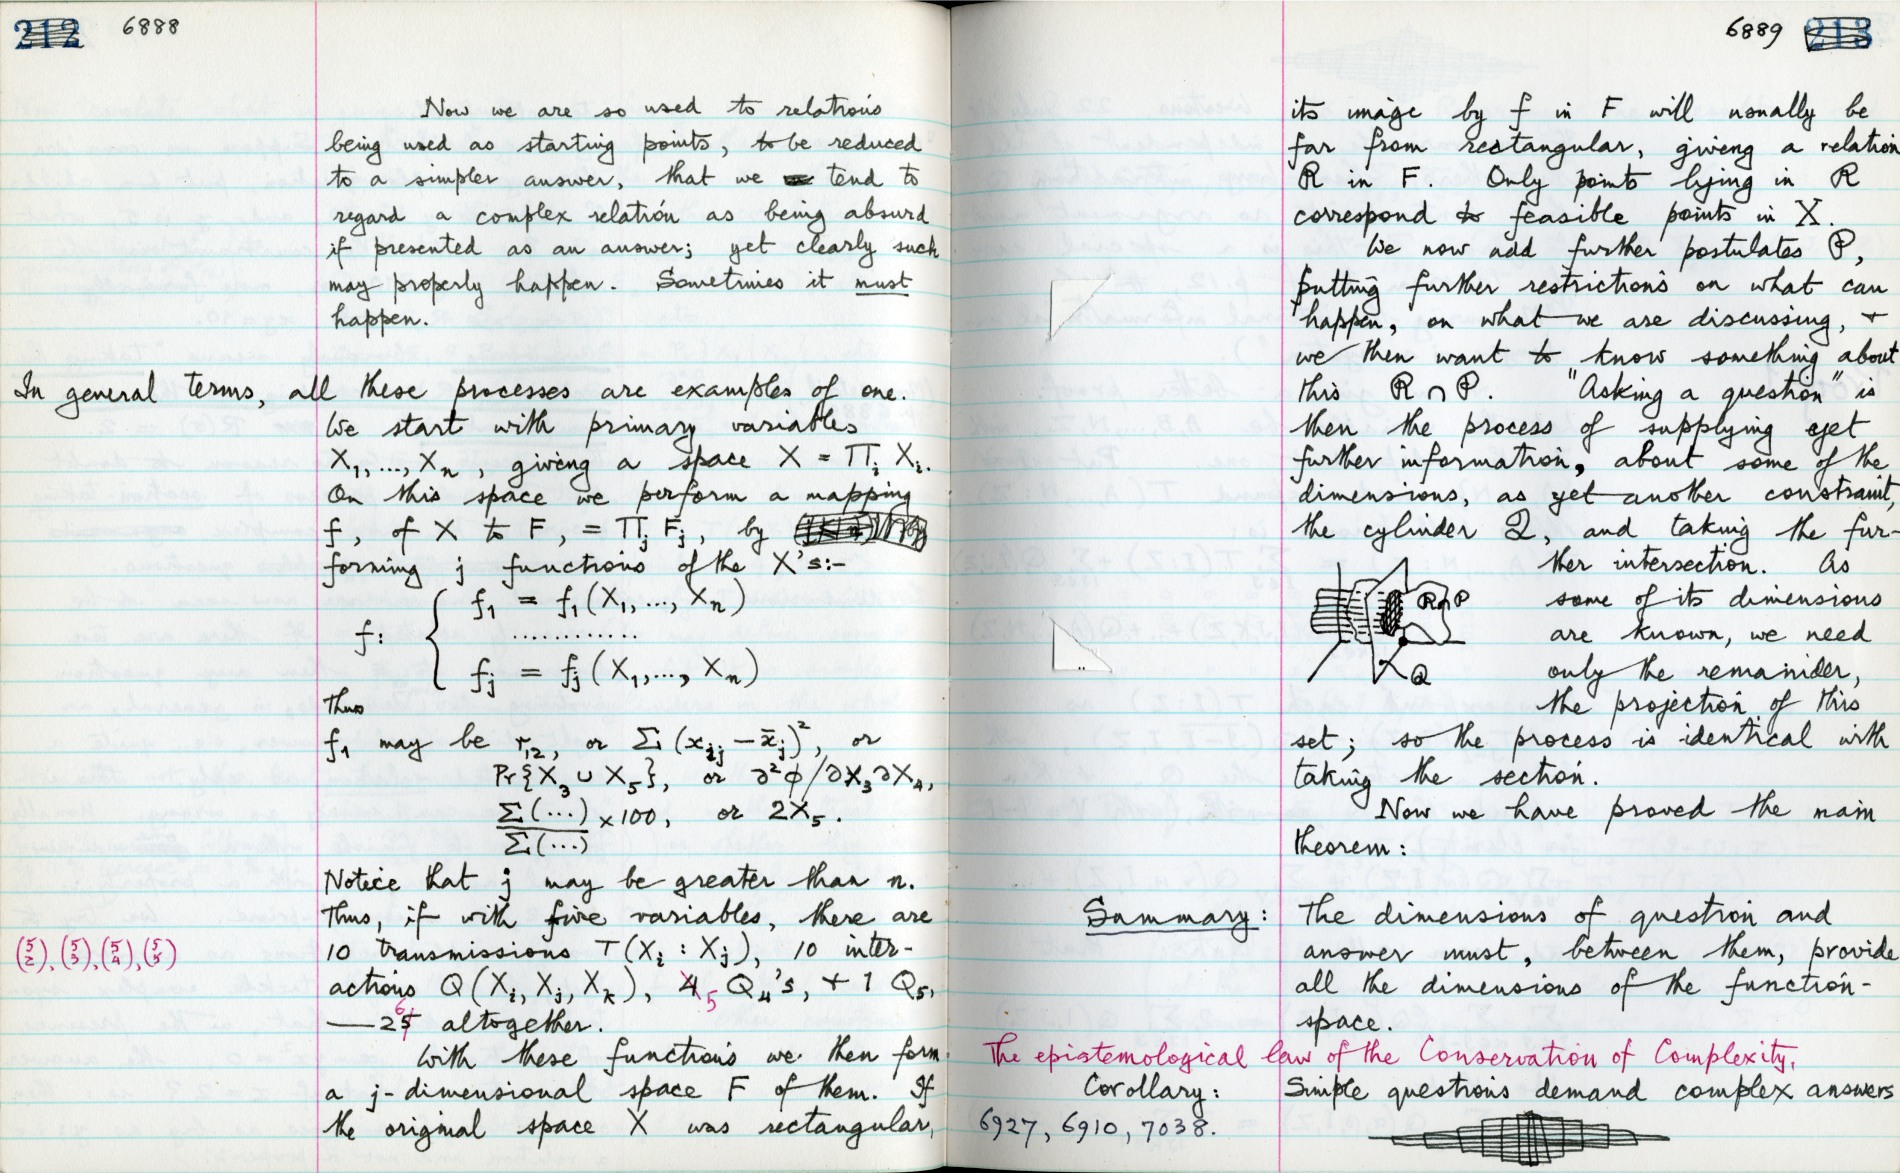 212 6888
Now we are so used to relations
being used as starting points, to be reduced
to a simpler answer, that we tend to
regard a complex relation as being absurd
if presented as an answer; yet clearly such
may properly happen. Sometimes it must
happen.
In general terms, all these processes are examples of one.
We start with primary variables
X₁,..., Xₙ, giving a space X = Πᵢ Xᵢ.
On this space we perform a mapping
f, of X to F, = Πⱼ Fⱼ, by
forming j functions of the X's:-
f₁ = f₁(X₁,..., Xₙ)
f: { ............
fⱼ = fⱼ(X₁,..., Xₙ)
Thus
f₁ may be r₁₂, or Σ(xᵢⱼ – x̄ⱼ)², or
Pr{X₃ ∪ X₅}, or ∂²φ/∂X₃∂X₄,
Σ(...)/Σ(...) ×100, or 2X₅.
Notice that j may be greater than n.
Thus, if with five variables, there are
(5 2), (5 3), (5 4), (5 5) 10 transmissions T(Xᵢ : Xⱼ), 10 inter-
actions Q(Xᵢ, Xⱼ, Xₖ), 4 5 Q₄'s, + 1 Q₅,
— 25 6 altogether.
With these functions we then form
a j-dimensional space F of them. If
the original space X was rectangular,
6889 213
its image by f in F will usually be
far from rectangular, giving a relation
R in F. Only points lying in R
correspond to feasible points in X.
We now add further postulates P,
putting further restrictions on what can
happen, on what we are discussing, +
we then want to know something about
this R ∩ P. "Asking a question" is
then the process of supplying yet
further information, about some of the
dimensions, as yet another constraint,
the cylinder Q, and taking the fur-
ther intersection. As
R∩P some of its dimensions
are known, we need
Q only the remainder,
the projection of this
set; so the process is identical with
taking the section.
Now we have proved the main
theorem:
Summary: The dimensions of question and
answer must, between them, provide
all the dimensions of the function-
space.
The epistemological law of the Conservation of Complexity.
Corollary: Simple questions demand complex answers
6927, 6910, 7038.